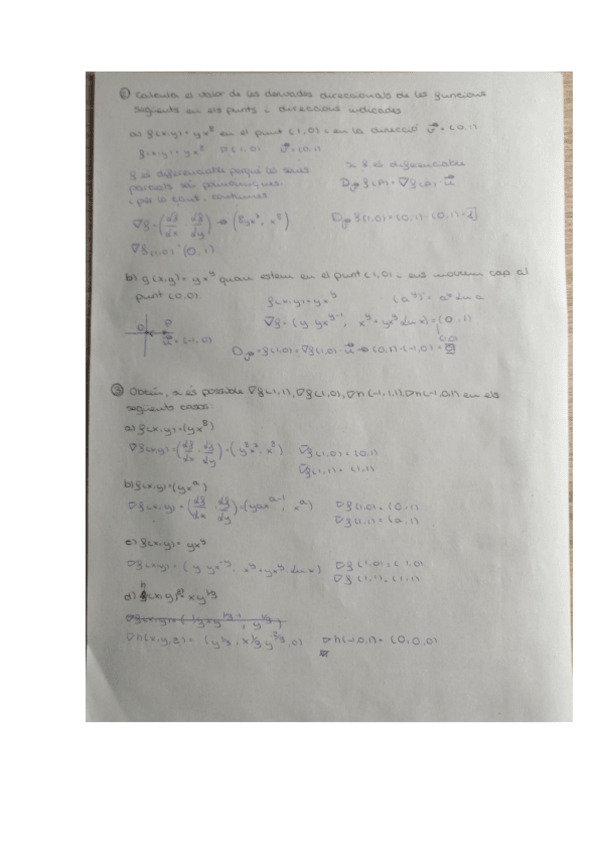 ② Calcula el valor de les derivades direccionals de les funcions
següents en els punts i direccions indicades:
a) f(x,y) = yx⁸ en el punt (1,0) i en la direcció v⃗ = (0,1)
f(x,y) = yx⁸ P(1,0) v⃗ = (0,1)
f és diferenciable perquè les seves
parcials són polinòmiques,
i per lo tant, contínues
si f és diferenciable
D f(P) = ∇f(P) · u⃗
∇f = (df/dx, df/dy) → (8yx⁷, x⁸)
D f(1,0) = (0,1)·(0,1) = 1
∇f(1,0) = (0,1)
b) f(x,y) = yx^y quan estem en el punt (1,0) i ens movem cap al
punt (0,0)
f(x,y) = yx^y (a^y)' = a^y ln a
∇f = (y·yx^(y-1), x^y + yx^y ln x) = (0,1)
(1,0)
O P
u⃗ = (-1,0)
D f(1,0) = ∇f(1,0) · u⃗ → (0,1)·(-1,0) = 0
③ Obtén, si és possible ∇f(1,1), ∇f(1,0), ∇h(-1,1,1), ∇h(-1,0,1) en els
següents casos:
a) f(x,y) = (yx⁸)
∇f(x,y) = (df/dx, df/dy) = (y8x⁷, x⁸)
∇f(1,0) = (0,1)
b) f(x,y) = (yx^a)
∇f(x,y) = (df/dx, df/dy) = (yax^(a-1), x^a)
∇f(1,0) = (0,1)
∇f(1,1) = (a,1)
c) f(x,y) = yx^y
∇f(1,1) = (1,1)
d) h(x,y,z) = xy^(1/3)
∇h(x,y,z) = (y^(1/3), x 1/3 y^(-2/3), 0)
∇h(-1,0,1) = (0,0,0)